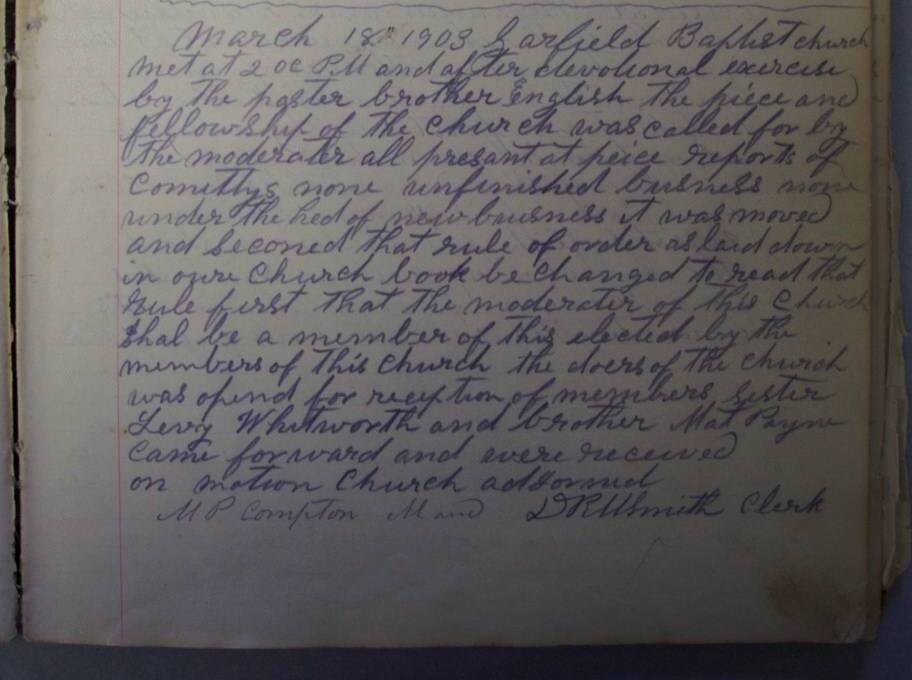 March 18" 1903 Garfield Baptist church
met at 2 oc P.M and after devotional exercise
by the paster brother English the piece and
fellowship of the church was called for by
the moderater all presant at peice reports of
comittys none unfinished busness none
under the hed of new buisness it was moved
and seconed that rule of order as laid down
in oure church book be changed to read that
rule first that the moderater of this church
shal be a member of this elected by the
members of this church the doers of the church
was opend for reception of members sister
Levy Whitworth and brother Mat Payne
came forward and were received
on motion church adjorned
M P Compton Mod D R Smith Clerk